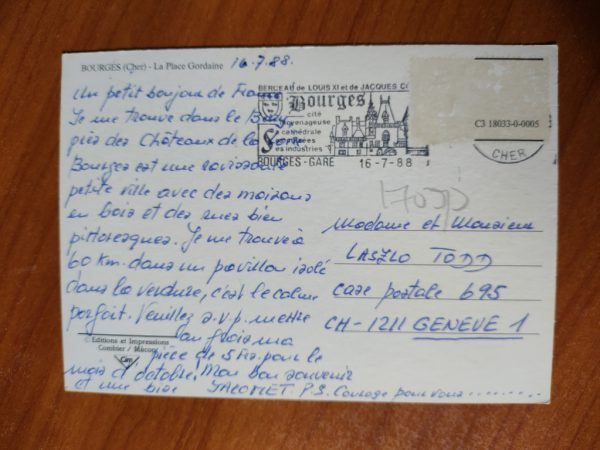 BOURGES (Cher) - La Place Gordaine
16.7.88.
BERCEAU de LOUIS XI et de JACQUES
Bourges
cité
cathédrale
industries
BOURGES-GARE 16-7-88
C3 18033-0-0005
CHER
Un petit bonjour de France
Je me trouve dans le
près des Châteaux de la
Bourges est une ravissante
petite ville avec des maisons
en bois et des rues bien
pittoresques. Je me trouve à
60 km. dans un pavillon isolé
dans la verdure, c'est le calme
parfait. Veuillez s.v.p. mettre
au frais ma
pièce de pour le
mois d'octobre. Mon bon souvenir
et une bise
P.S. Courage pour vous........
© Editions et Impressions
Combier / Mâcon
Cim
Madame et Monsieur
LASZLO TODD
case postale 695
CH-1211 GENEVE 1